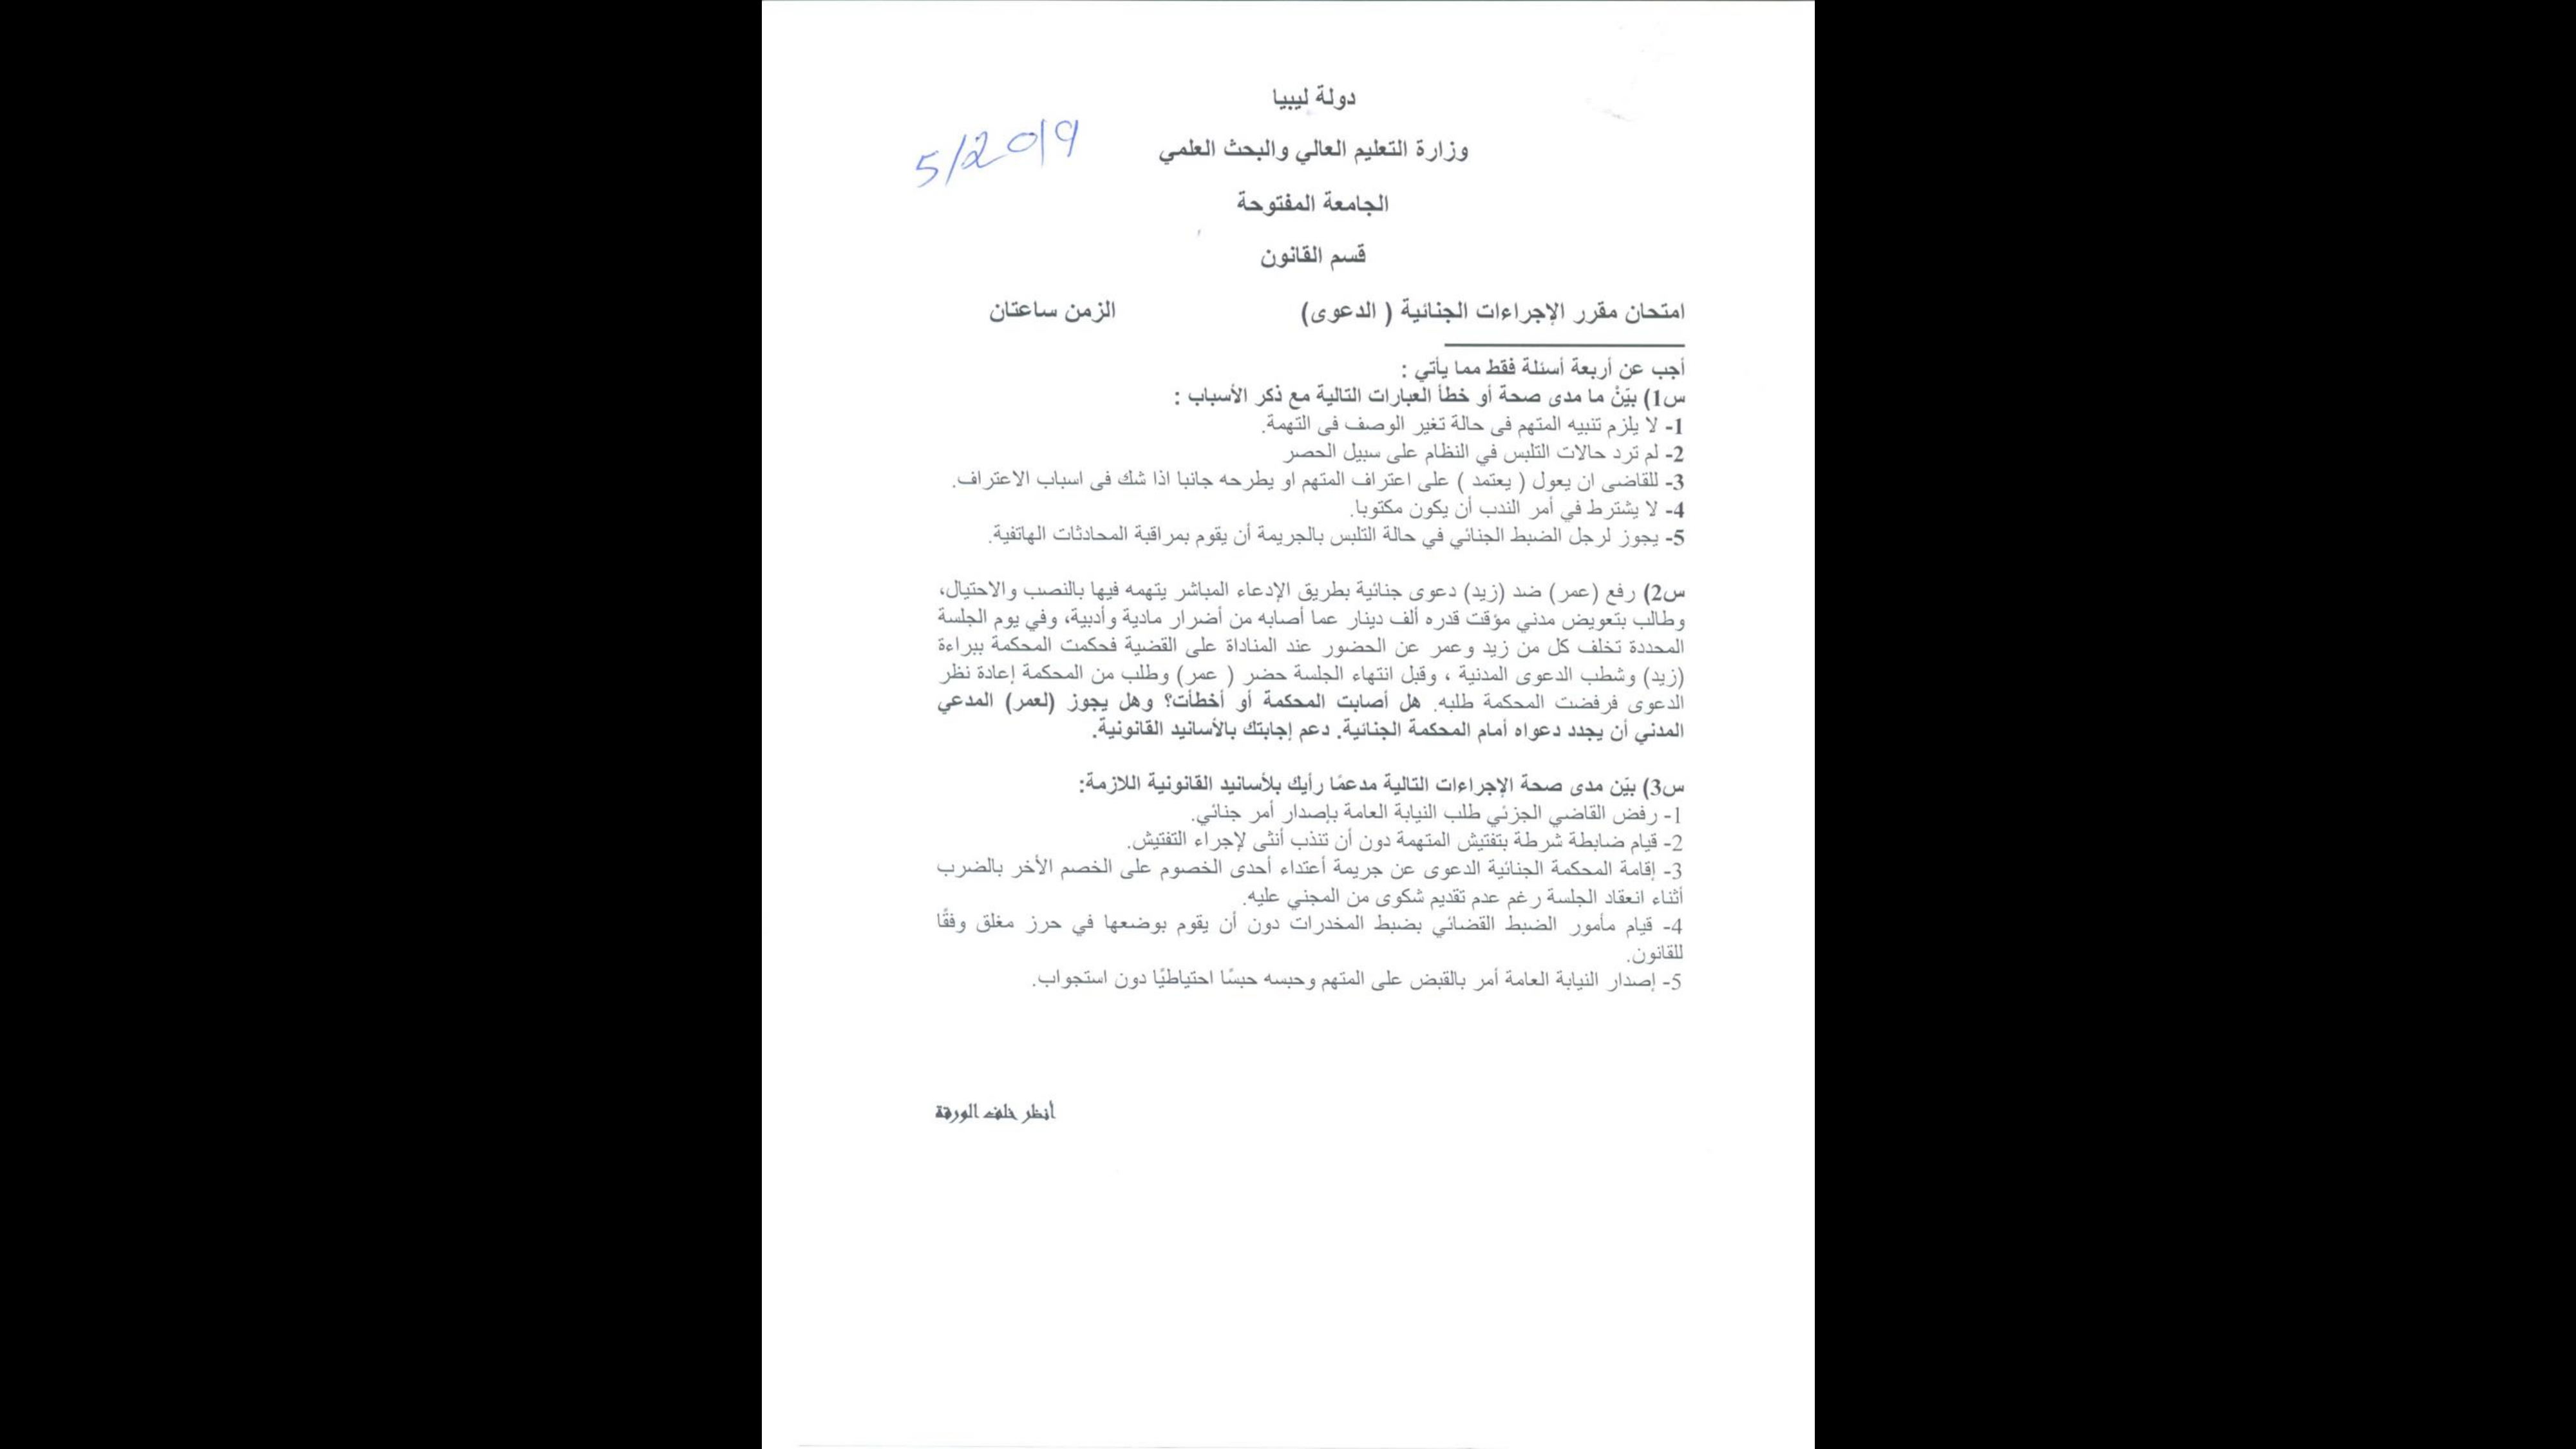 دولة ليبيا
5/2019
وزارة التعليم العالي والبحث العلمي
الجامعة المفتوحة
قسم القانون
امتحان مقرر الإجراءات الجنائية ( الدعوى) الزمن ساعتان
أجب عن أربعة أسئلة فقط مما يأتي :
س1) بيَنْ ما مدى صحة أو خطأ العبارات التالية مع ذكر الأسباب :
1- لا يلزم تنبيه المتهم فى حالة تغير الوصف فى التهمة.
2- لم ترد حالات التلبس في النظام على سبيل الحصر
3- للقاضى ان يعول ( يعتمد ) على اعتراف المتهم او يطرحه جانبا اذا شك فى اسباب الاعتراف.
4- لا يشترط في أمر الندب أن يكون مكتوبا.
5- يجوز لرجل الضبط الجنائي في حالة التلبس بالجريمة أن يقوم بمراقبة المحادثات الهاتفية.
س2) رفع (عمر) ضد (زيد) دعوى جنائية بطريق الإدعاء المباشر يتهمه فيها بالنصب والاحتيال،
وطالب بتعويض مدني مؤقت قدره ألف دينار عما أصابه من أضرار مادية وأدبية، وفي يوم الجلسة
المحددة تخلف كل من زيد وعمر عن الحضور عند المناداة على القضية فحكمت المحكمة ببراءة
(زيد) وشطب الدعوى المدنية ، وقبل انتهاء الجلسة حضر ( عمر) وطلب من المحكمة إعادة نظر
الدعوى فرفضت المحكمة طلبه. هل أصابت المحكمة أو أخطأت؟ وهل يجوز (لعمر) المدعي
المدني أن يجدد دعواه أمام المحكمة الجنائية. دعم إجابتك بالأسانيد القانونية.
س3) بيَن مدى صحة الإجراءات التالية مدعمًا رأيك بلأسانيد القانونية اللازمة:
1- رفض القاضي الجزئي طلب النيابة العامة بإصدار أمر جنائي.
2- قيام ضابطة شرطة بتفتيش المتهمة دون أن تنذب أنثى لإجراء التفتيش.
3- إقامة المحكمة الجنائية الدعوى عن جريمة أعتداء أحدى الخصوم على الخصم الأخر بالضرب
أثناء انعقاد الجلسة رغم عدم تقديم شكوى من المجني عليه.
4- قيام مأمور الضبط القضائي بضبط المخدرات دون أن يقوم بوضعها في حرز مغلق وفقًا
للقانون.
5- إصدار النيابة العامة أمر بالقبض على المتهم وحبسه حبسًا احتياطيًا دون استجواب.
أنظر خلف الورقة